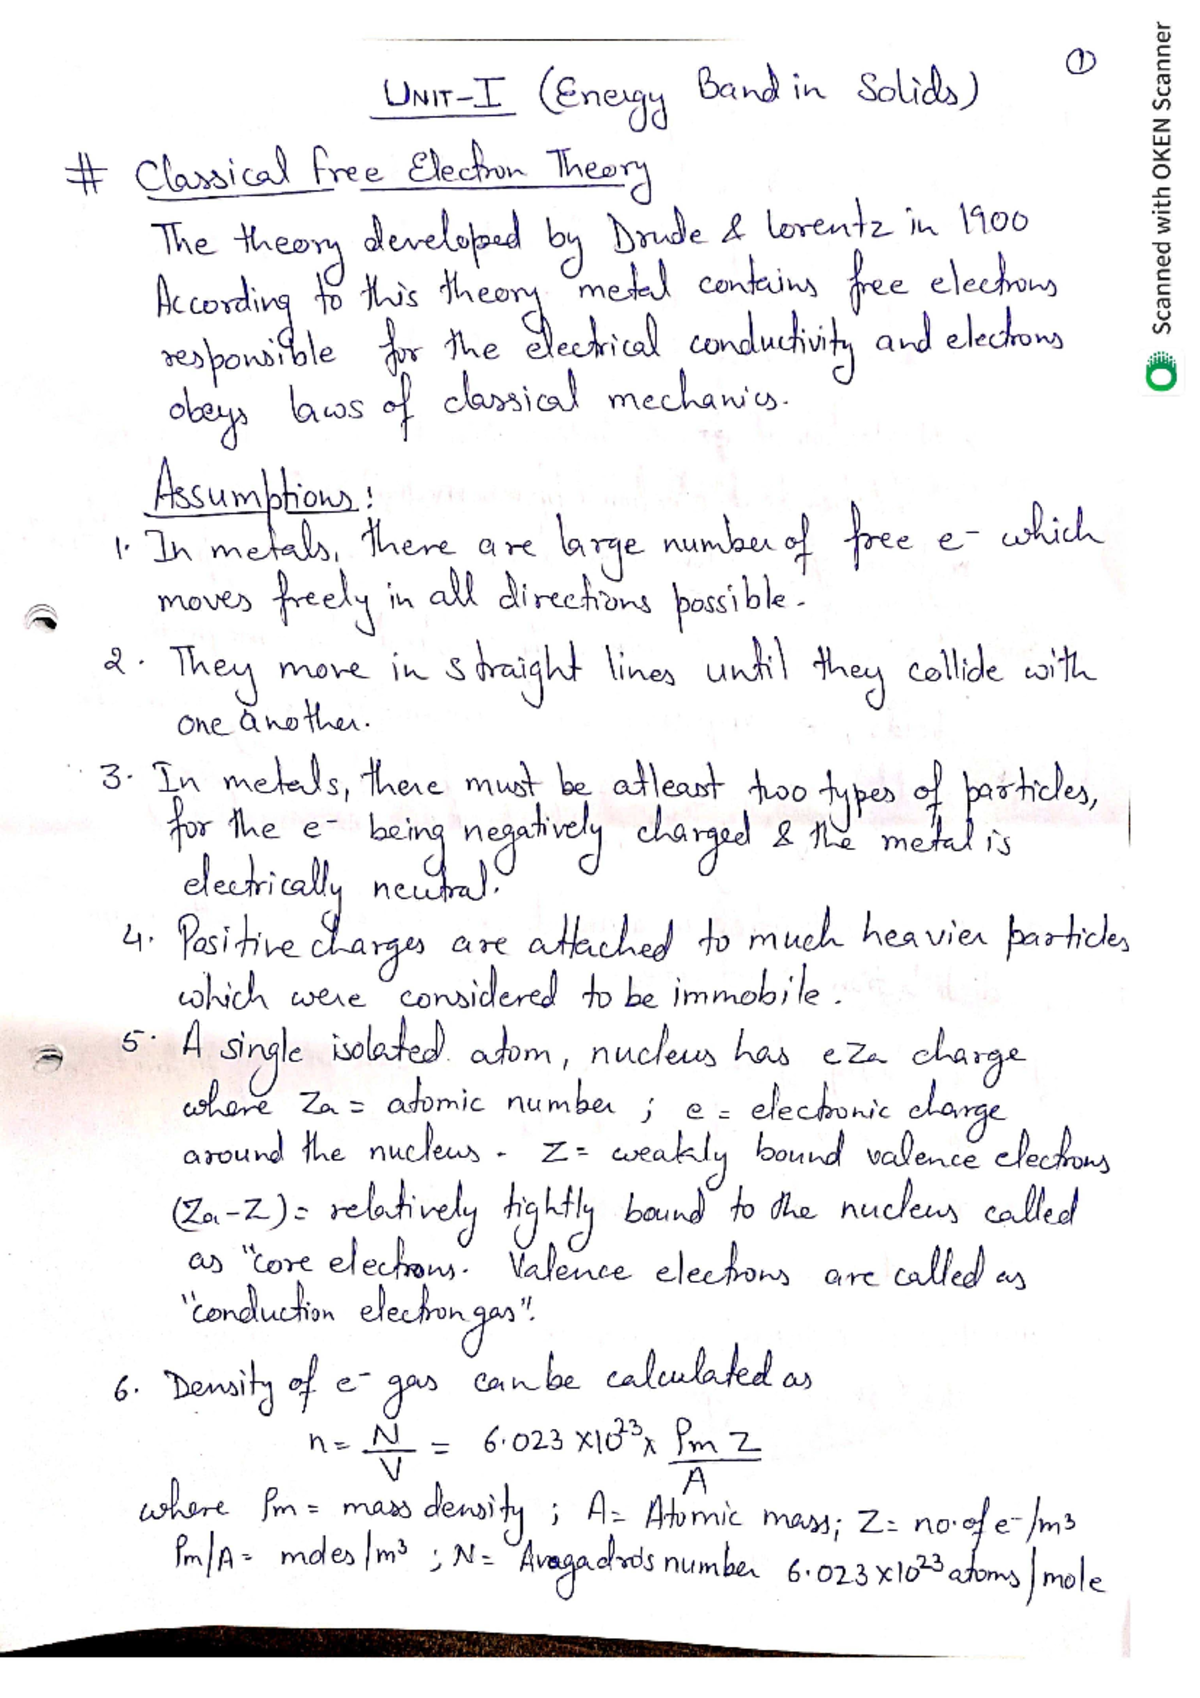 ①
UNIT-I (Energy Band in Solids)
# Classical Free Electron Theory
The theory developed by Drude & Lorentz in 1900
According to this theory metal contains free electrons
responsible for the electrical conductivity and electrons
obeys laws of classical mechanics.
Assumptions:
1. In metals, there are large number of free e- which
moves freely in all directions possible.
2. They move in straight lines until they collide with
one another.
3. In metals, there must be atleast two types of particles,
for the e- being negatively charged & the metal is
electrically neutral.
4. Positive charges are attached to much heavier particles
which were considered to be immobile.
5. A single isolated atom, nucleus has eZa charge
where Za = atomic number ; e = electronic charge
around the nucleus. Z = weakly bound valence electrons
(Za-Z) = relatively tightly bound to the nucleus called
as "core electrons. Valence electrons are called as
"conduction electron gas".
6. Density of e- gas can be calculated as
n = N/V = 6.023 x10²³ x ρm Z/A
where ρm = mass density ; A = Atomic mass; Z = no. of e-/m³
ρm/A = moles/m³ ; N = Avagadro's number 6.023 x10²³ atoms/mole
Scanned with OKEN Scanner